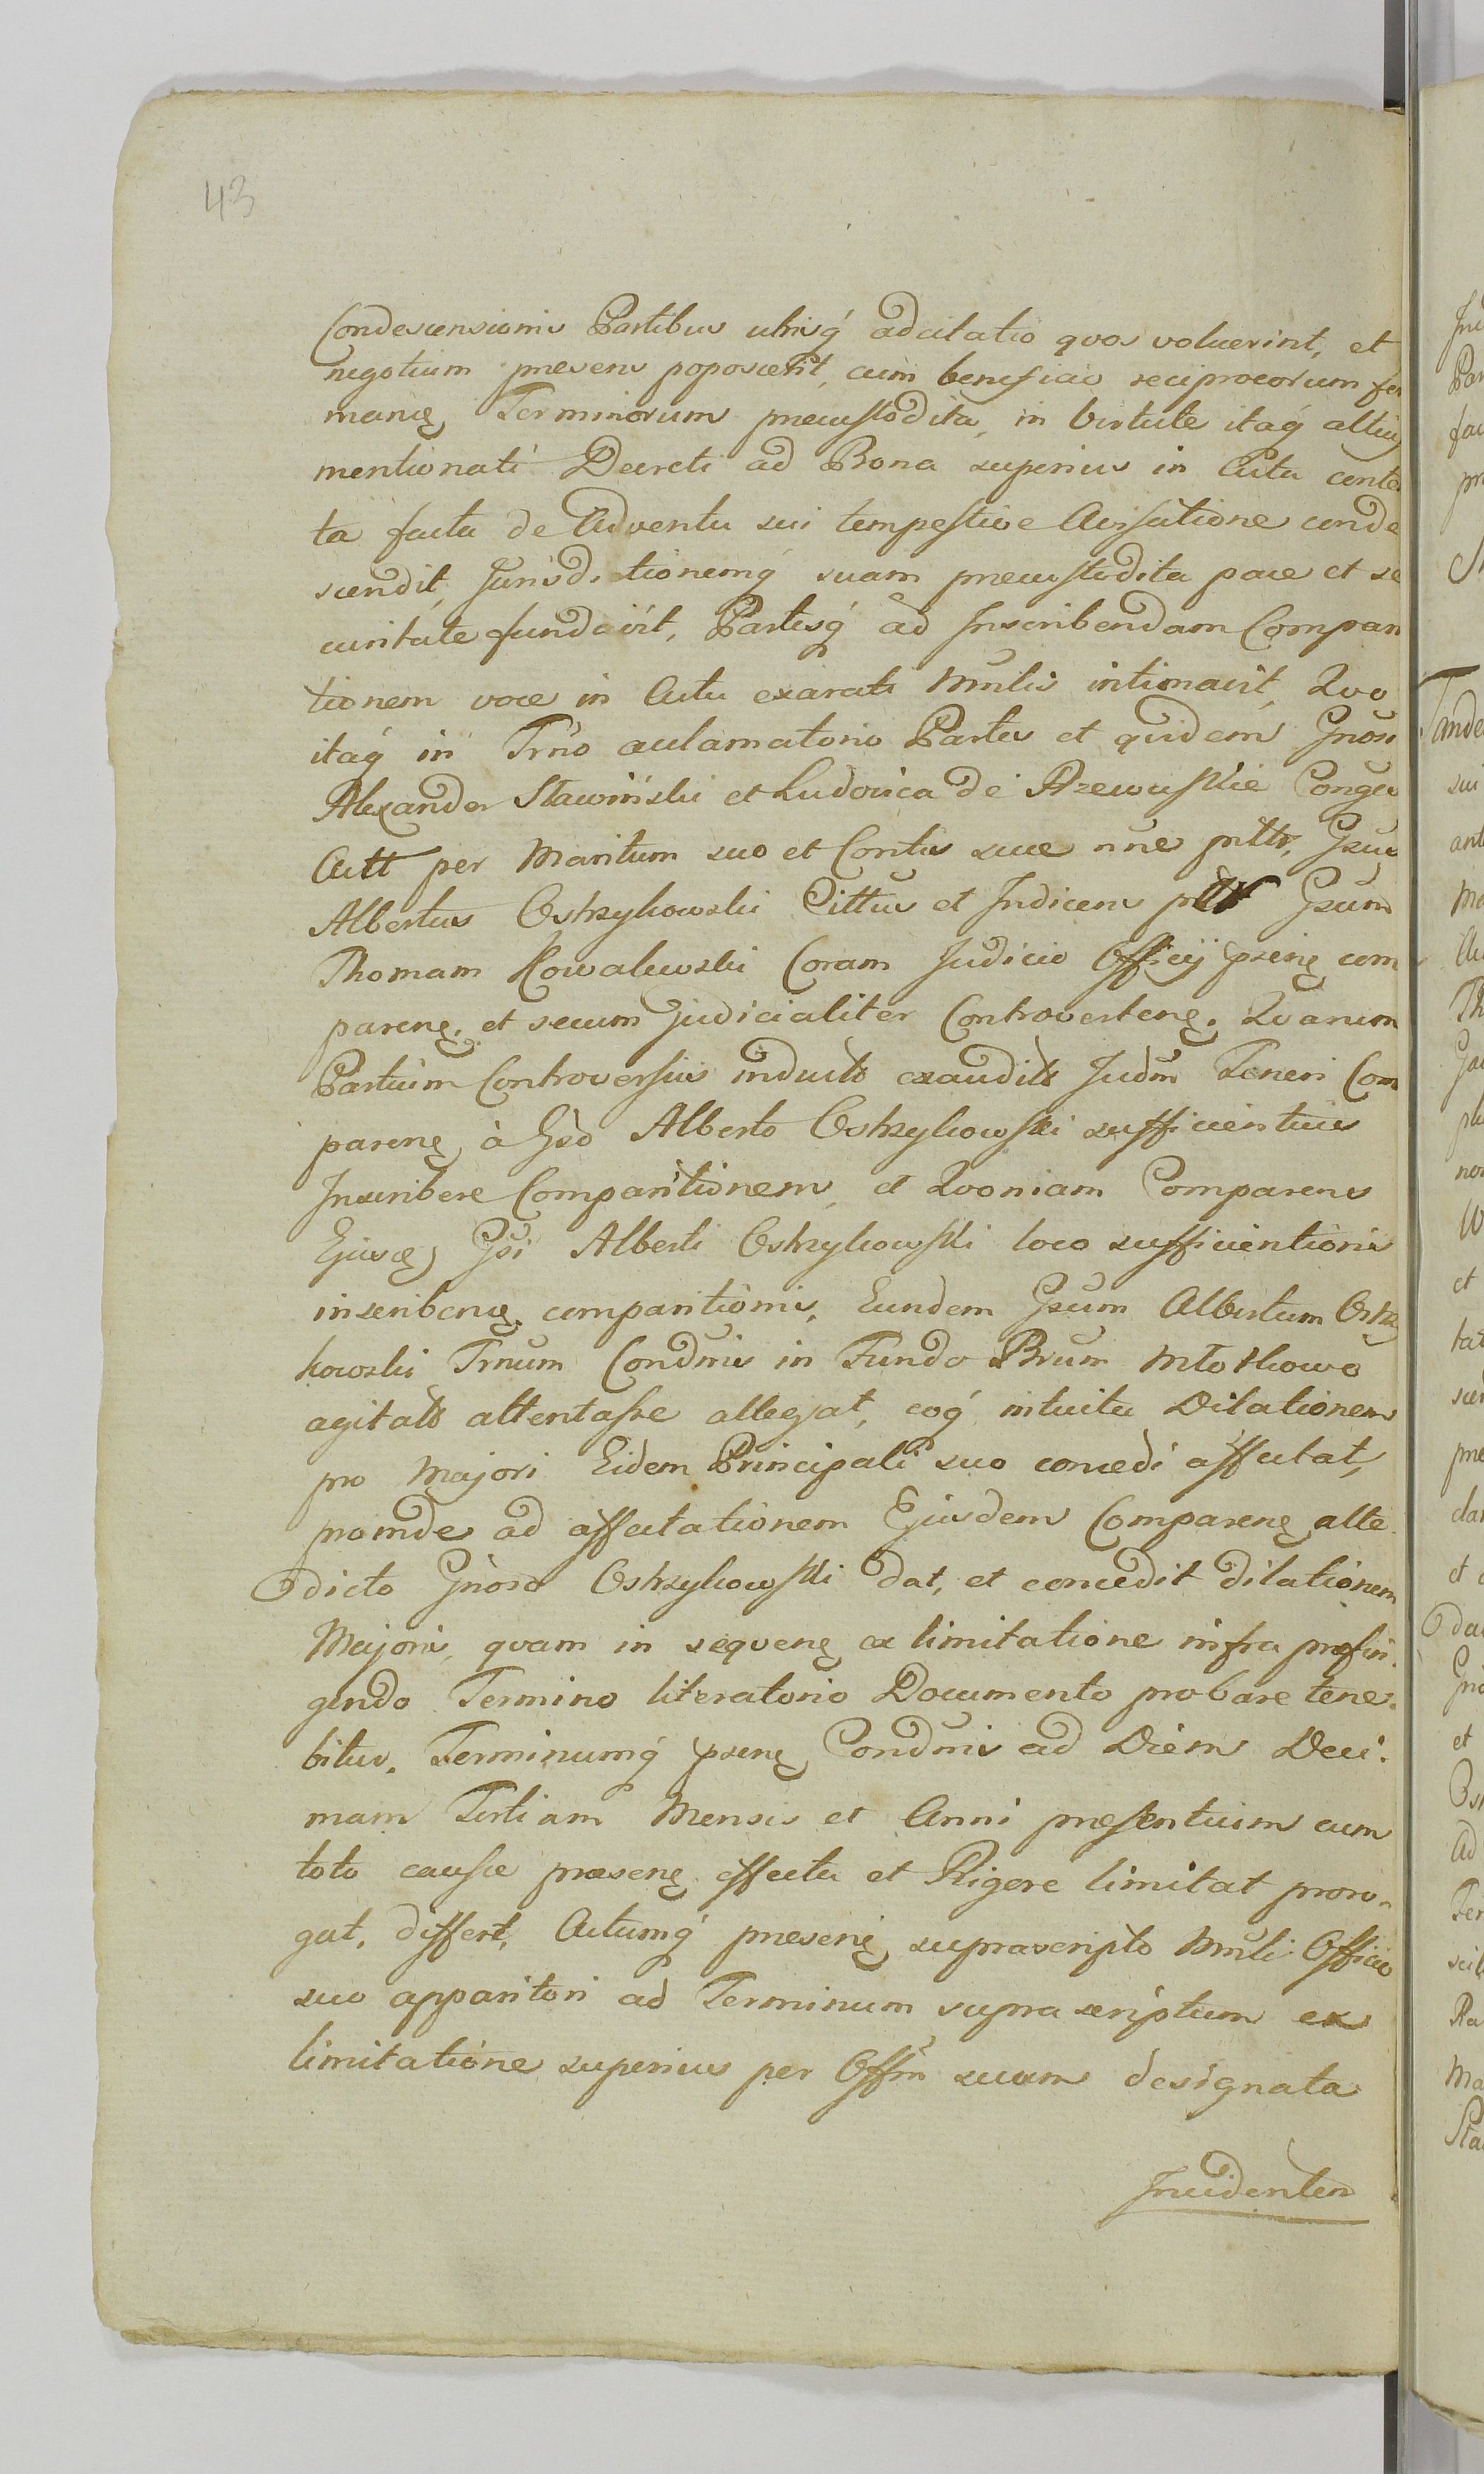 43
Condescensionis Partibus utrisq́ adcitatio quos voluerint, et
negotium presens poposcerit, cum beneficio reciprocorum fer
manę Terminorum precustodita, in Virtute itaq́ altius
mentionati Decreti ad Bona superius in Actu conten
ta facta de Adventu sui tempestive Avisatione conde
scendit, Jurisdictionemq́ suam precustodita pace et se
curitate fundavit, Partesq́ ad Inscribendam Compari
tionem voce in Actu exarati Mnlis intimavit, Quo
itaq́ in Trno acclamatorio Partes et quidem Gnosi
Alexander Stawinski et Ludovica de Rzewuskie Conges
Actt per Maritum suo et Contis suae nne pittr, Gsus
Albertus Ostrzykowski Cittus et Indicens Gsum
Thomam Kowalewski Coram Judicio Officij psenę com
parenę. et secum judicialiter Controvertenę. Quarum
Partium Controversiis inductis exauditis Judm Teneri Com
parenę à Gso Alberto Ostrzykowski sufficientius
Inscribere Comparitionem, et Quoniam Comparens
Gsi Alberti Ostrzykowski loco sufficientioris
inscribenę. comparitionis, Eundem Gsum Albertum Ostrzy
kowski Trnum Condnis in Fundo Brum Młotkowo
agitatis attentasse allegat, eoq́ intuitu Dilationem
pro Majori Eidem Principali suo concedi affectat,
proinde ad affectationem Ejusdem Comparenę alte
dicto Gnoso Ostrzykowski dat, et concedit dilationem
Majoris, quam in sequenę ex limitatione infra prefin-
gendo Termino literatorio Documento probare tene-
bitur. Terminumq́ psenę Condnis ad Diem Deci-
mam Tertiam Mensis et Anni presentium cum
toto causae praesenę. effectu et Rigore limitat proro-
gat, differt, Actumq́ presenę suprascripto Mnli Officio
suo apparitori ad Terminum suprascriptum ex
limitatione superius per Offm suum designata
Incidenten